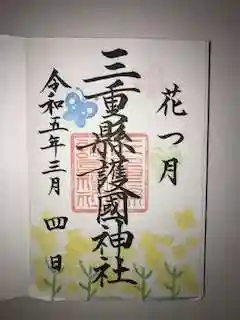 花つ月
三重縣護國神社
令和五年三月四日